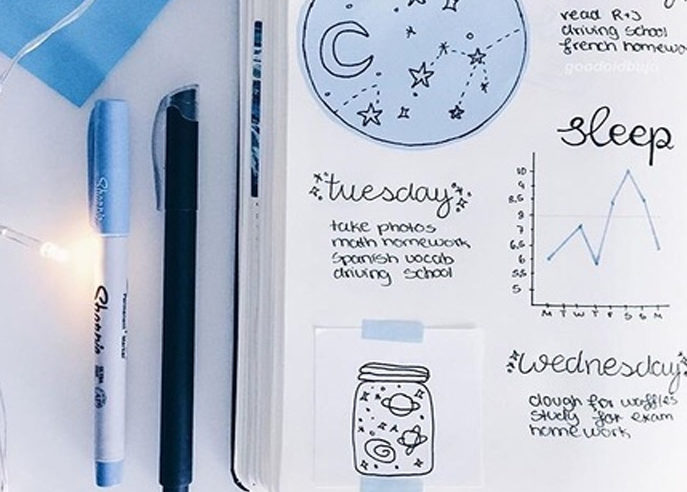 read R+J
driving school
french homewo
goodoldbujo
sleep
tuesday
take photos
math homework
spanish vocab
driving school
10
9
8.5
8
7
6.5
6
5.5
5
M T W T F S S M
wednesday
dough for waffles
study for exam
homework
Sharpie
Sharpie
Permanent Marker